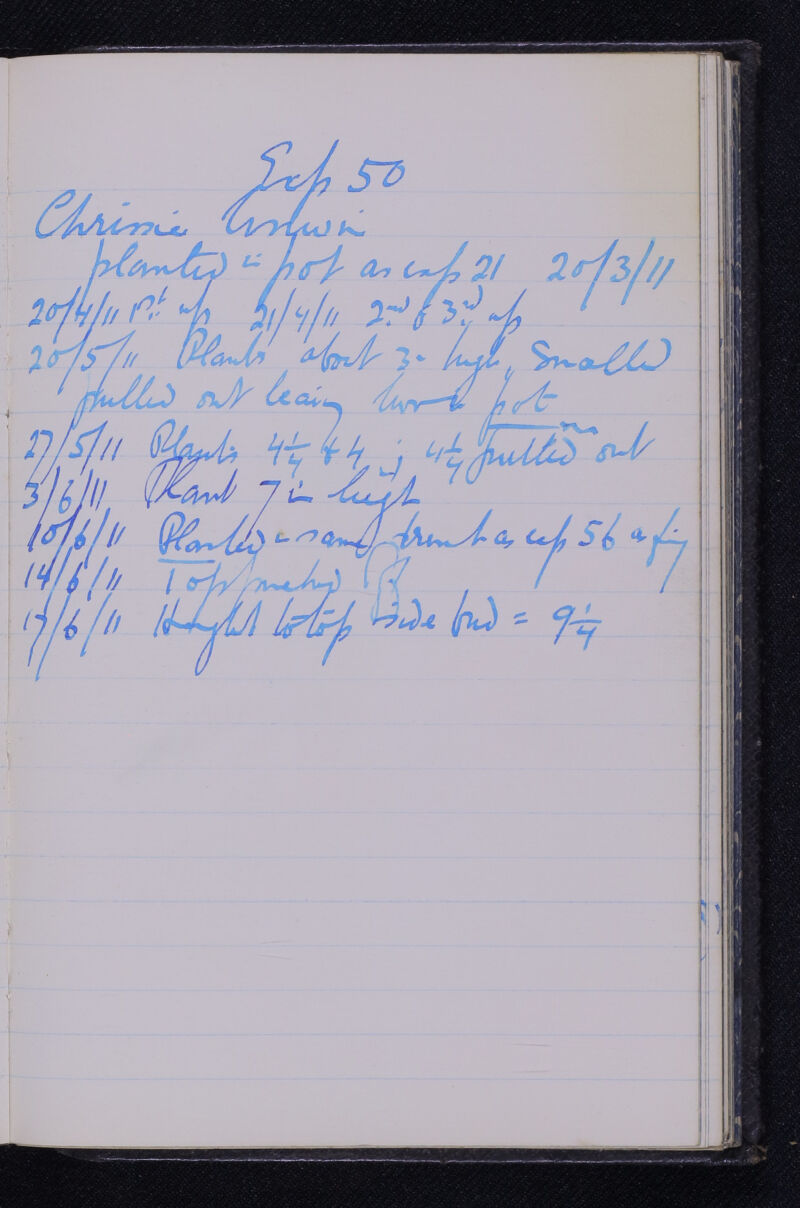 Exp 50
Chrissie Unwin
planted in pot as exp 21 20/3/11
20/4/11 1st up 21/4/11 2nd & 3rd up
20/5/11 Plants about 3in high, Smallest
pulled out leaving two in pot
27/5/11 Plants 4¼ & 4 in; 4¼ pulled out
3/6/11 Plant 7 in high
10/6/11 Planted in same as exp 56 as fig
14/6/11 Top
17/6/11 Height to top side bud = 9¼